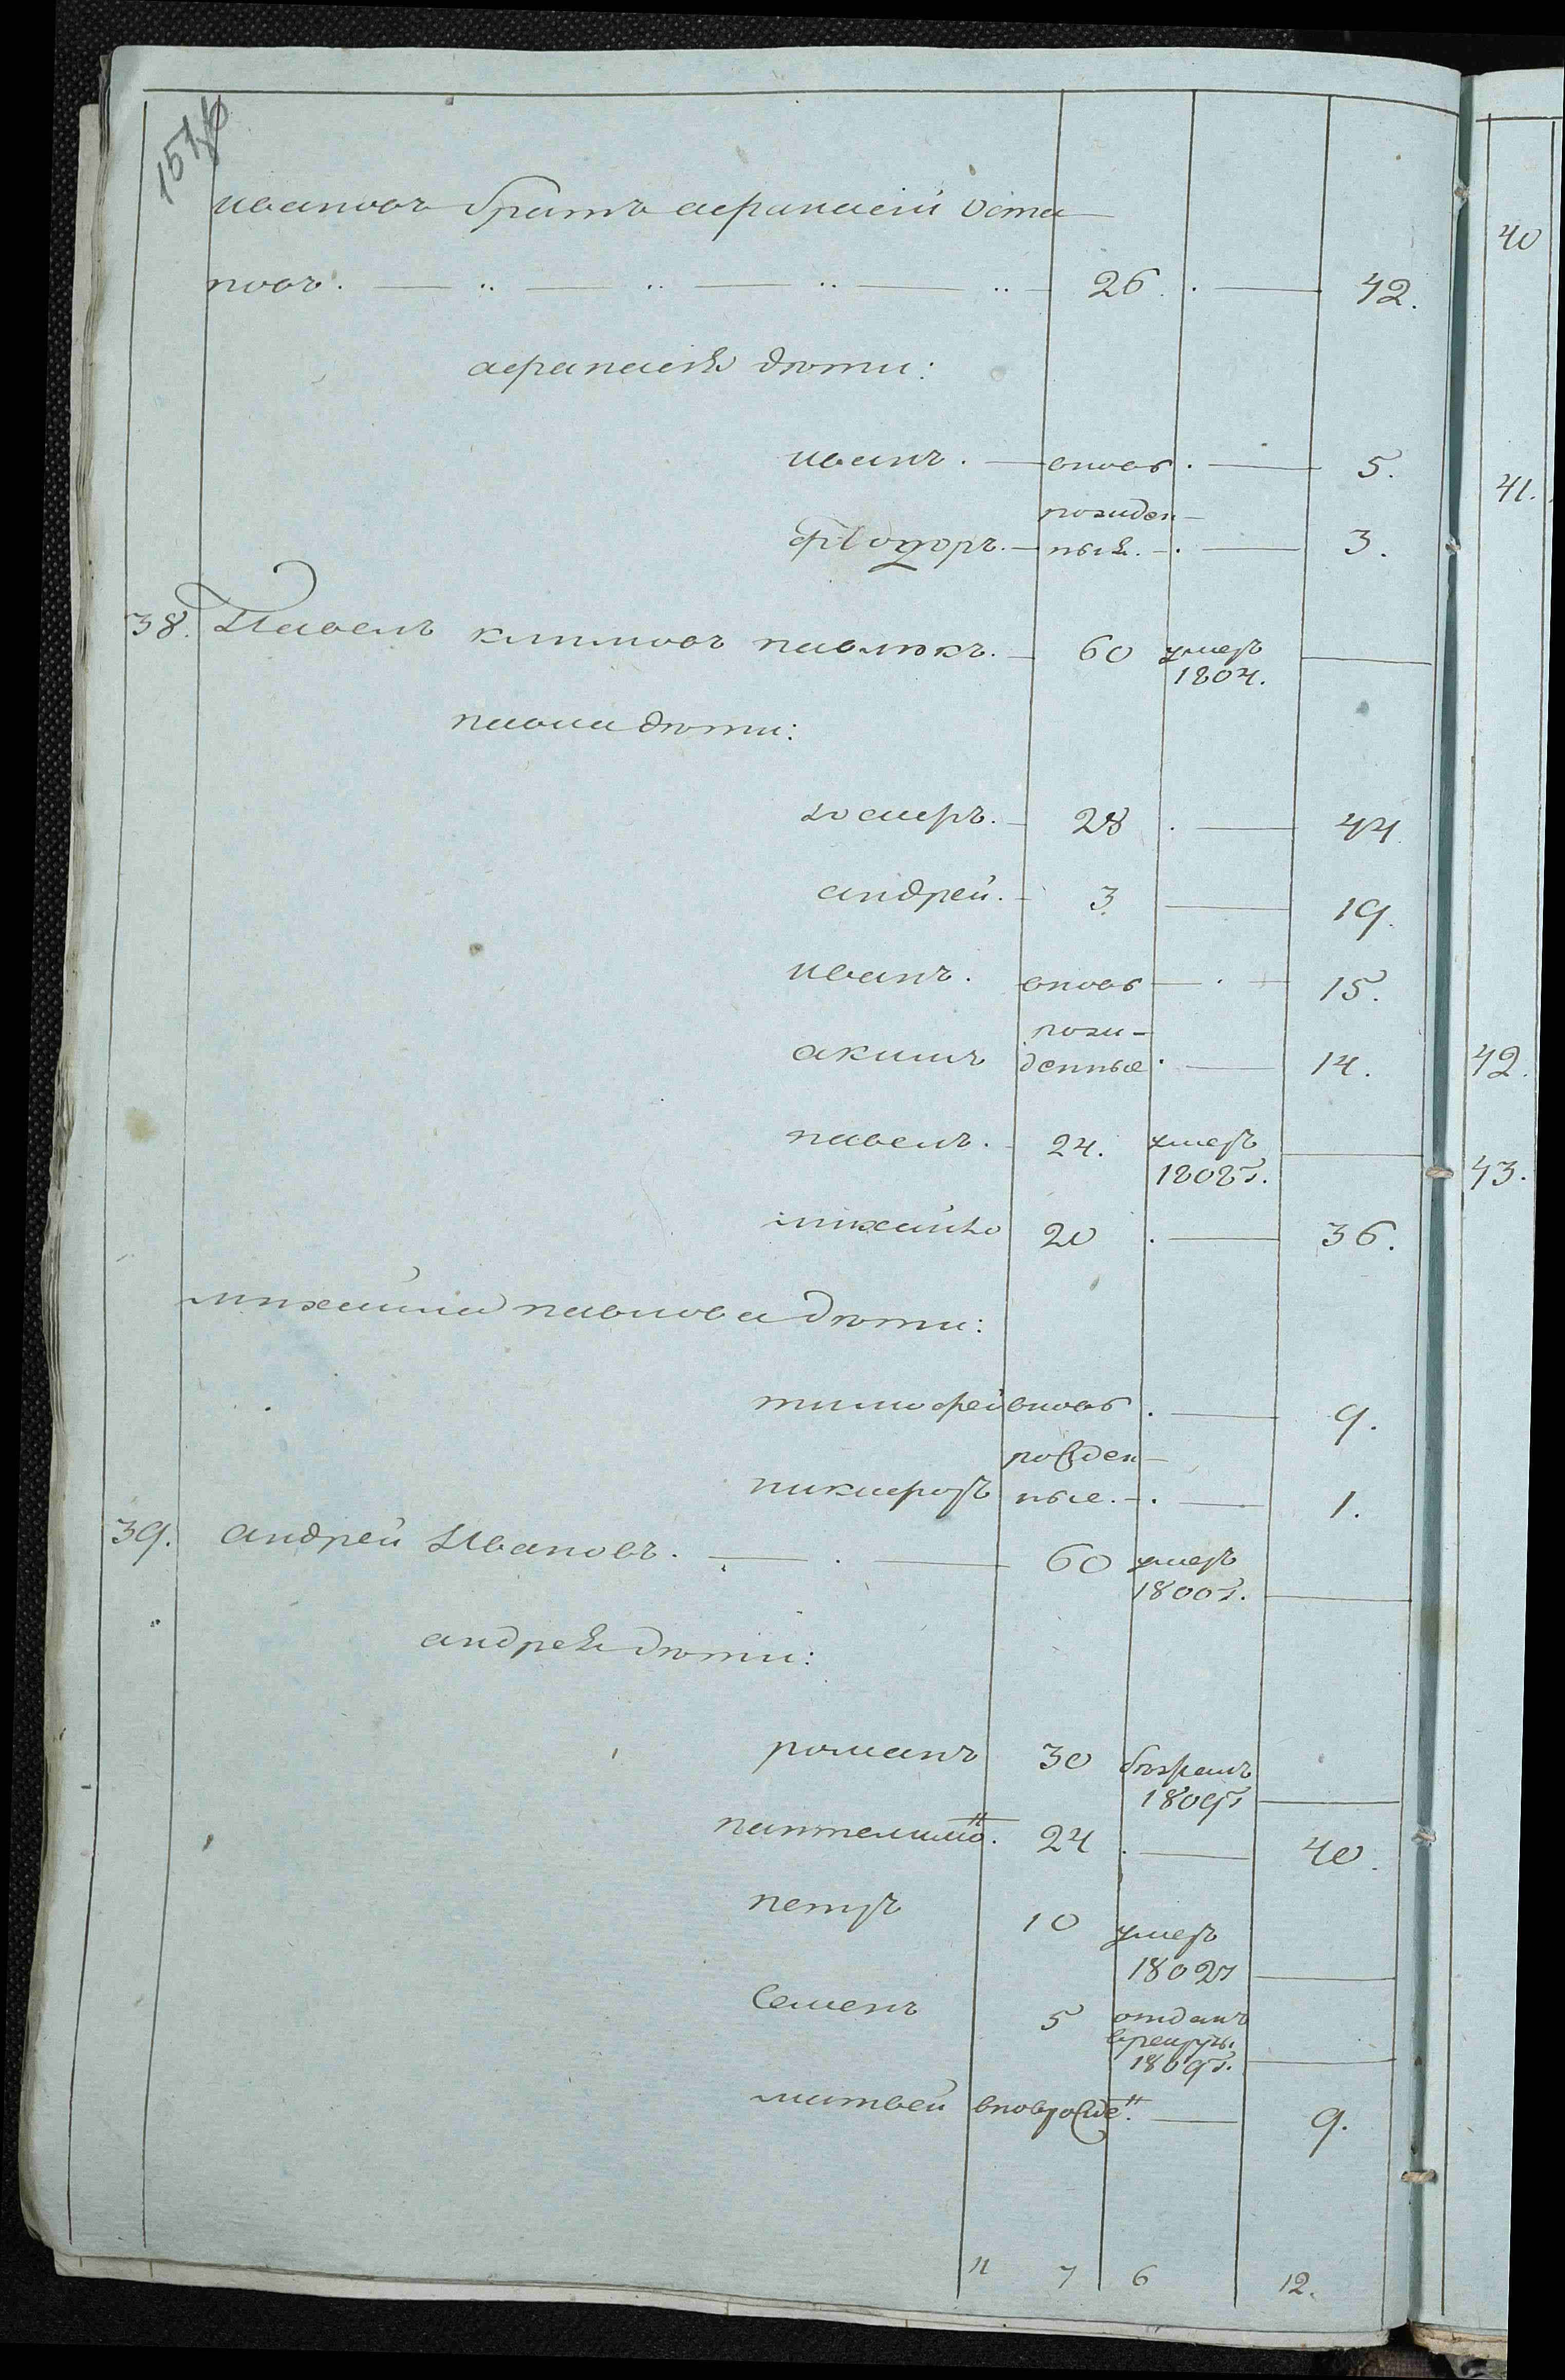 ивановъ братъ афанасiй оста
повъ. 26. 42.
афанасья дѣти:
иванъ. вновь 5.
рожден
федоръ. ные. 3.
38. Павелъ климовъ павлюкъ. 60 умеръ
1804.
павла дѣти:
иосифъ. 28 44.
андрей. 3. 19.
иванъ. вновь 15.
рожи-
акимъ денные 14.
павелъ. 24. умеръ
1808г.
михайло 20 36.
михайлы павлова дѣти:
тимофей вновь 9.
рожден
никифоръ ные. 1.
39. андрей Ивановъ. 60 умеръ
1800г.
андрея дѣти:
романъ 30 бѣжалъ
1809г
пантелимонъ. 24 40.
петръ 10 умеръ
1802г
Семенъ 5 отданъ
врекруты
1809г.
матвей вноврожде. 9.
7 6 12.
40
41.
42.
43.